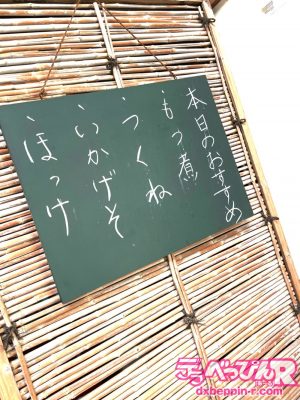 本日のおすすめ
、もつ煮
、つくね
、いかげそ
、ほっけ
デラべっぴんR
dxbeppin-r.com